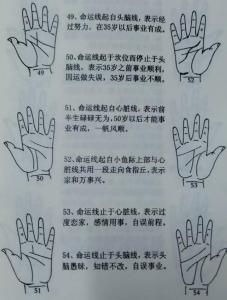 49、命运线起自头脑线，表示经
过努力，在35岁以后事业有成。
50、命运线起于坎位而停止于头
脑线。表示35岁之前事业顺利，
因运做失误，35岁后事业不顺。
51、命运线起自心脏线，表示前
半生碌碌无为，50岁以后才能事
业有成，一帆风顺。
52、命运线起自小鱼际上部与心
脏线共用一段走向食指丘，表示
家和万事兴。
53、命运线止于心脏线，表示过
度恋家，感情用事，自误前程。
54、命运线止于头脑线，表示头
脑愚昧，知错不改，自误事业。
49
50
51
52
53
54